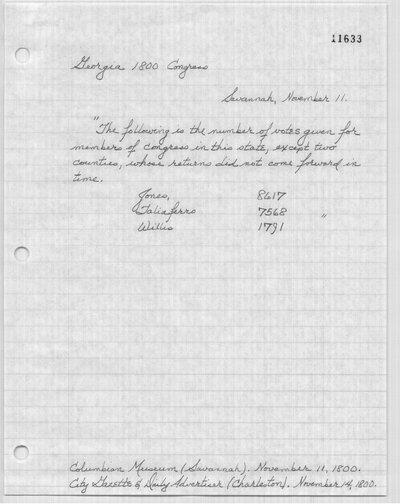 11633
Georgia 1800 Congress
Savannah, November 11.
"The following is the number of votes given for
members of congress in this state, except two
counties, whose returns did not come forward in
time.
Jones, 8617
Taliaferro 7568 "
Willis 1791
Columbian Museum (Savannah). November 11, 1800.
City Gazette & Daily Advertiser (Charleston). November 14, 1800.